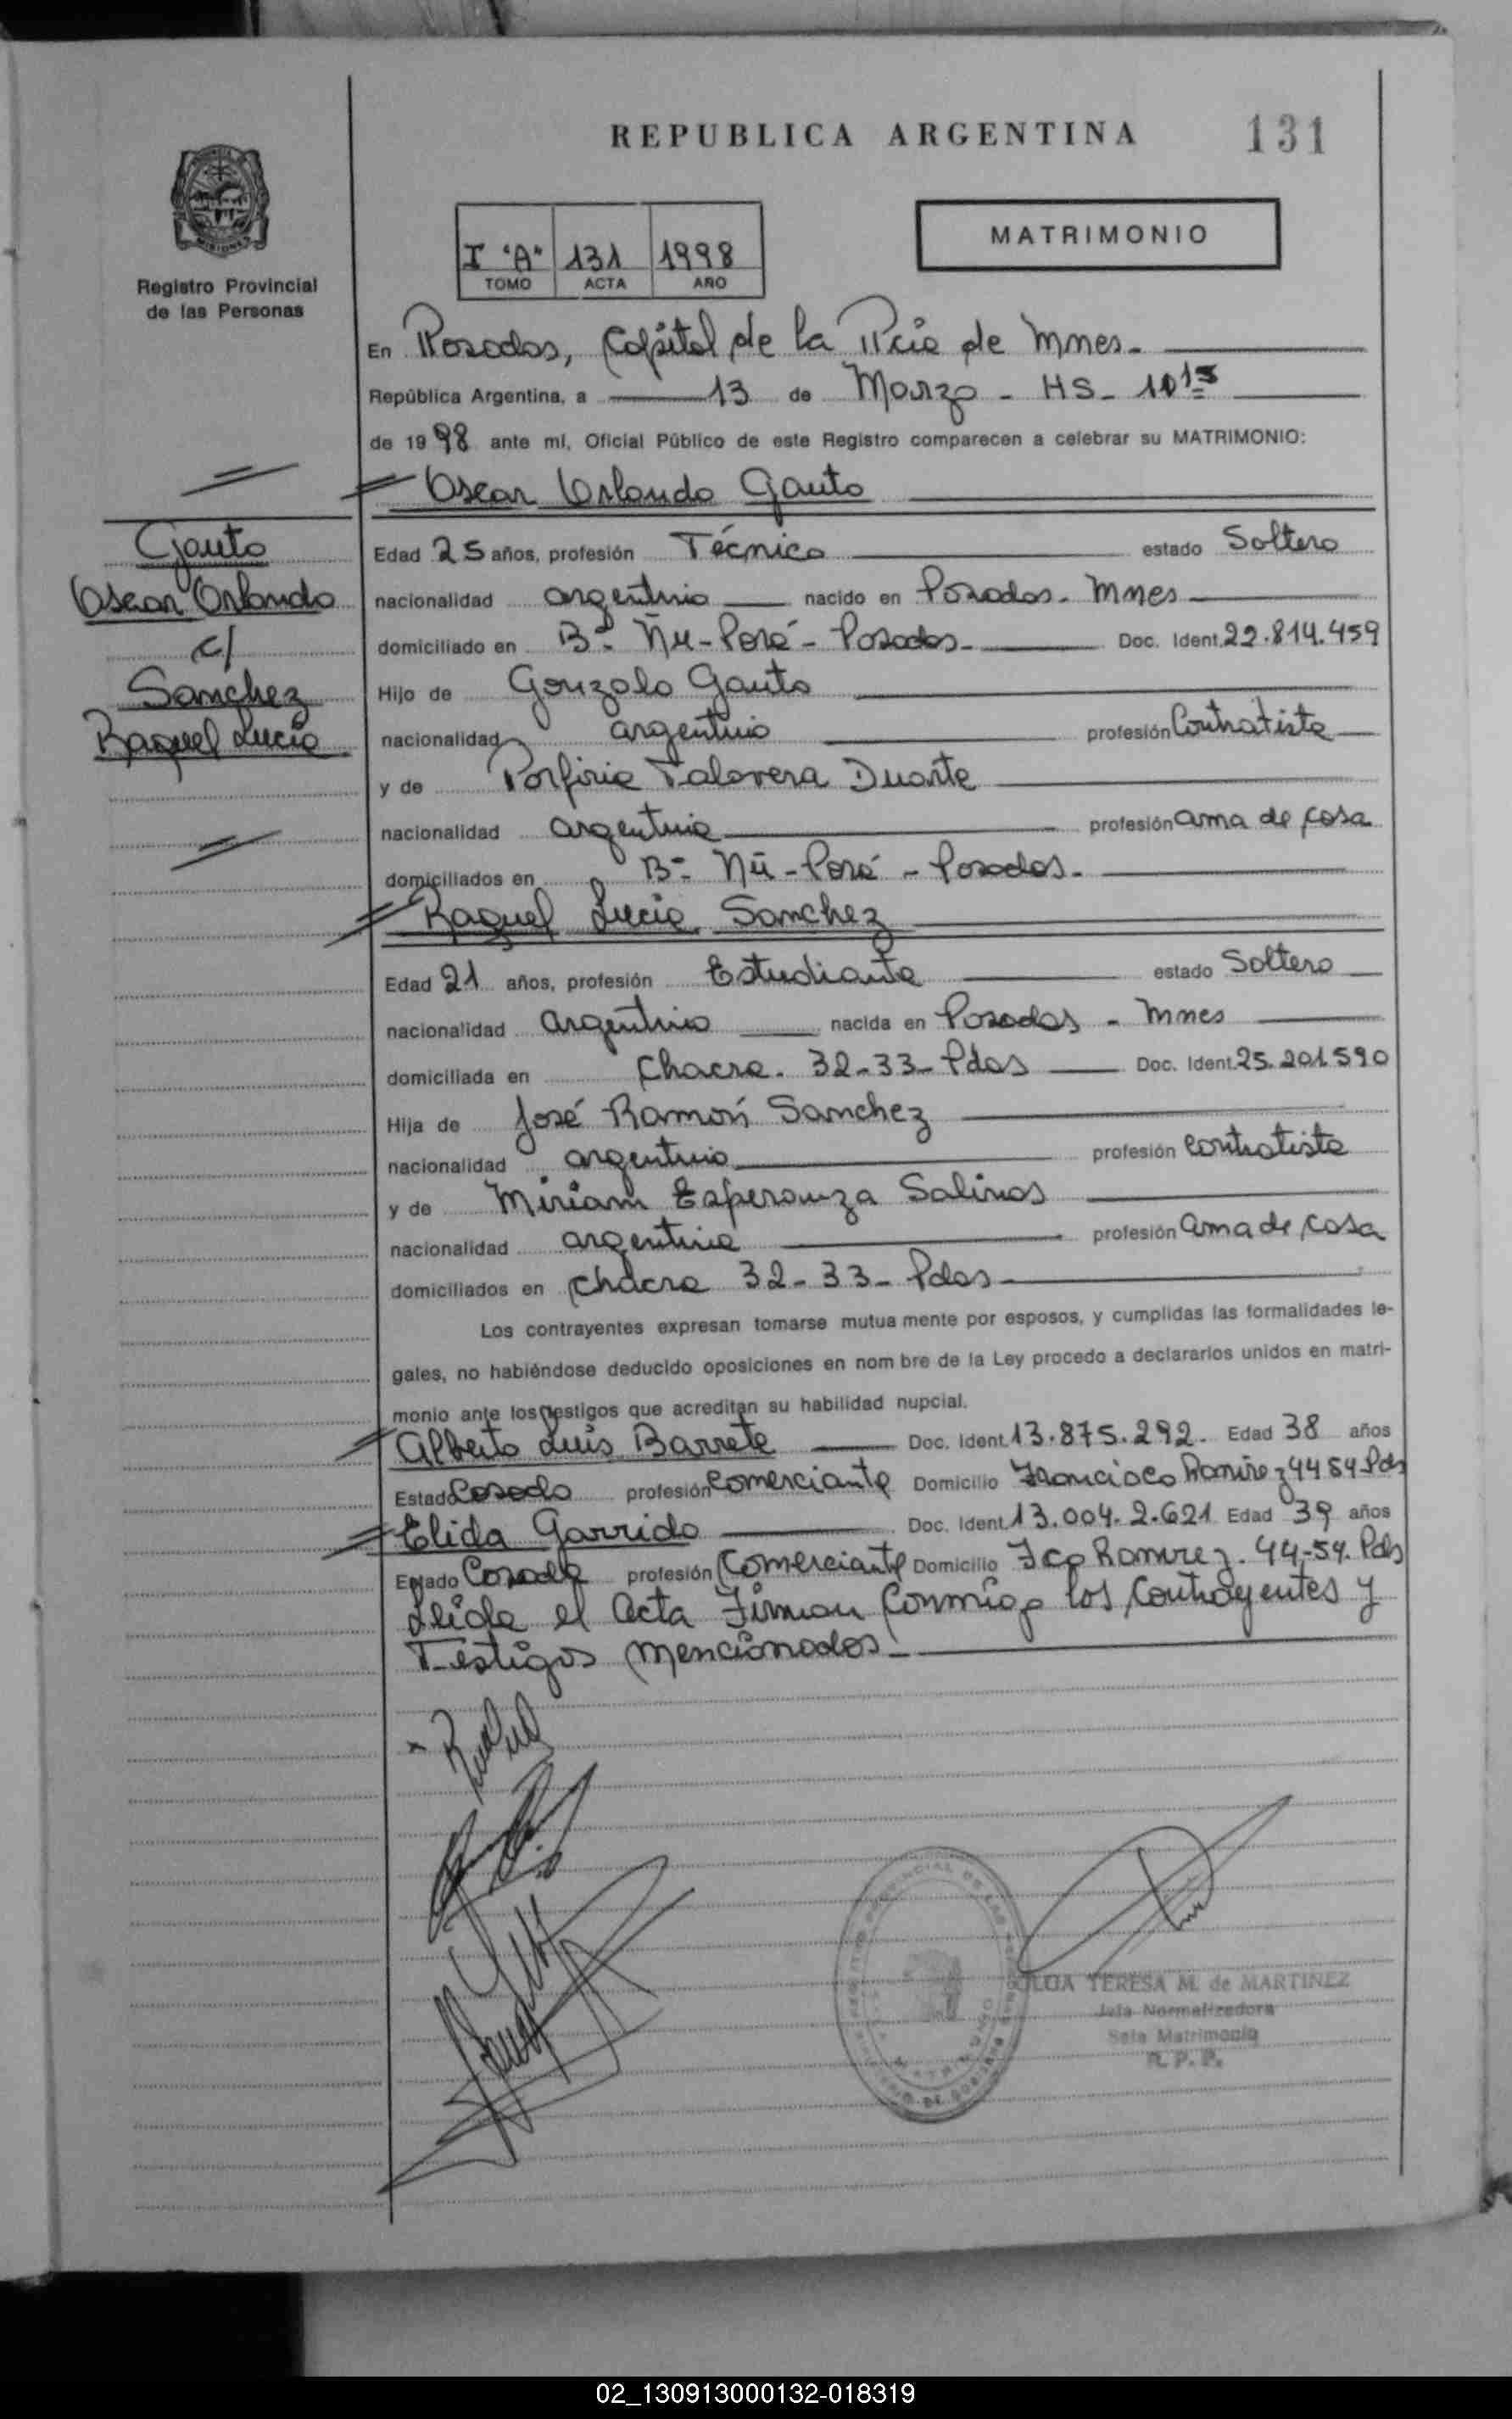 REPUBLICA ARGENTINA
131
MATRIMONIO
I "A" 131 1998
TOMO ACTA AÑO
Registro Provincial
de las Personas
En Posadas, Capital de la Pcia de Mnes.
República Argentina, a 13 de Marzo - HS - 10 15
de 19 98 ante mí, Oficial Público de este Registro comparecen a celebrar su MATRIMONIO:
Oscar Orlando Gauto
Gauto
Oscar Orlando
c/
Sanchez
Raquel Lucia
Edad 25 años, profesión Técnico estado Soltero
nacionalidad argentino nacido en Posadas - Mnes
domiciliado en Bº Ñu-Porá - Posadas - Doc. Ident. 22.814.459
Hijo de Gonzalo Gauto
nacionalidad argentino profesión Contratista
y de Porfiria Talavera Duarte
nacionalidad argentina profesión ama de casa
domiciliados en Bº Ñú-Porá - Posadas -
Raquel Lucia Sanchez
Edad 21 años, profesión Estudiante estado Soltera
nacionalidad argentina nacida en Posadas - Mnes
domiciliada en Chacra. 32-33- Pdas Doc. Ident. 25.201.590
Hija de José Ramón Sanchez
nacionalidad argentino profesión contratista
y de Miriam Esperanza Salinas
nacionalidad argentina profesión ama de casa
domiciliados en chacra 32-33- Pdas
Los contrayentes expresan tomarse mutua mente por esposos, y cumplidas las formalidades le-
gales, no habiéndose deducido oposiciones en nom bre de la Ley procedo a declararlos unidos en matri-
monio ante los testigos que acreditan su habilidad nupcial.
Alberto Luis Barrete Doc. Ident. 13.875.292. Edad 38 años
Estado Casado profesión Comerciante Domicilio Francisco Ramirez 4454 Pdas
Elida Garrido Doc. Ident. 13.004.2.621 Edad 39 años
Estado Casada profesión Comerciante Domicilio Fco Ramirez. 44-54. Pdas
Leida el Acta Firman Conmigo los Contrayentes y
Testigos mencionados.
TERESA M. de MARTINEZ
Jefa Normalizadora
Sala Matrimonio
R. P. P.
02_130913000132-018319